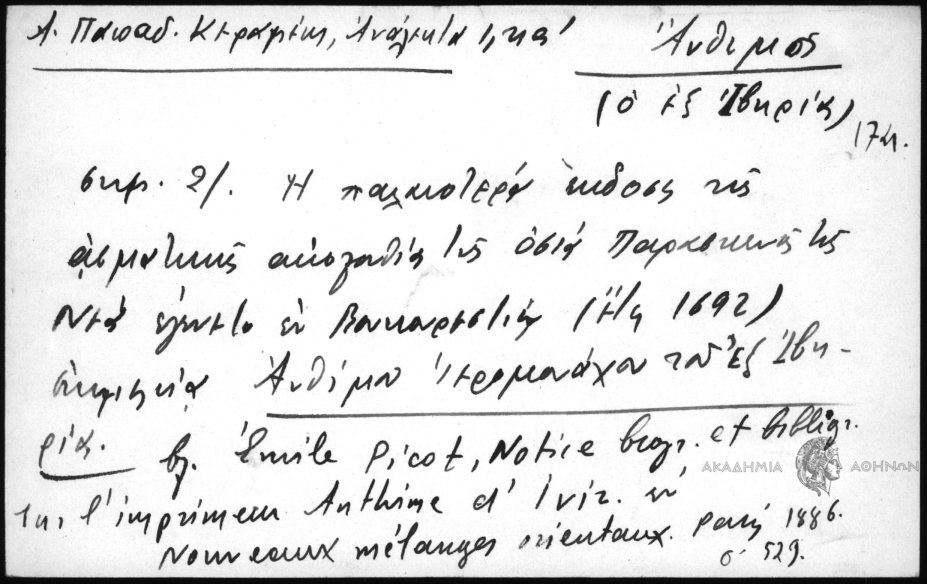 Α. Παπαδ. Κεραμεύς, Ἀνάλεκτα Ι, κα'
Ἄνθιμος
(ὁ ἐξ Ἰβηρίας)
17 αι.
σημ. 2/. Ἡ παλαιοτέρα ἔκδοσις τῆς
ᾀσματικῆς ἀκολουθίας τῆς ὁσίας Παρασκευῆς τῆς
Νέας ἐγένετο ἐν Βουκουρεστίῳ (ἔτ. 1692)
ἐπιμελείᾳ Ἀνθίμου ἱερομονάχου τοῦ ἐξ Ἰβη-
ρίας. βλ. Émile Picot, Notice biogr. et bibliogr.
sur l'imprimeur Anthime d'Ivir. ἐν
Nouveaux mélanges orientaux. Paris 1886.
σ. 529.
ΑΚΑΔΗΜΙΑ ΑΘΗΝΩΝ